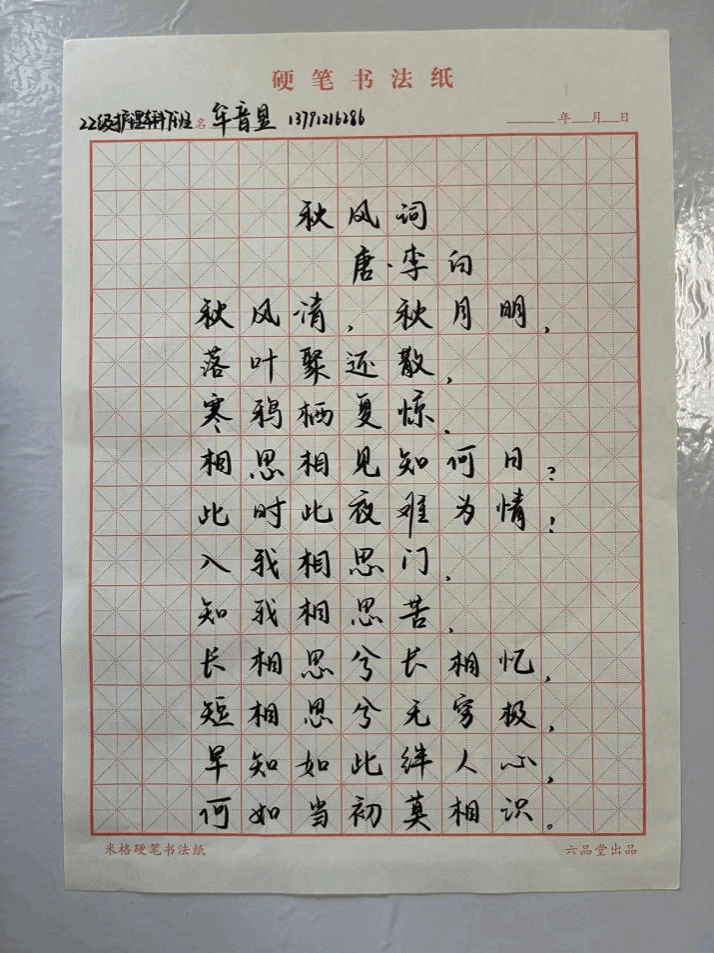 硬笔书法纸
22级护理本科7班名 牟音昱 13791216286 年 月 日
秋风词
唐·李白
秋风清,秋月明,
落叶聚还散,
寒鸦栖复惊.
相思相见知何日?
此时此夜难为情!
入我相思门,
知我相思苦,
长相思兮长相忆,
短相思兮无穷极,
早知如此绊人心,
何如当初莫相识。
米格硬笔书法纸 六品堂出品